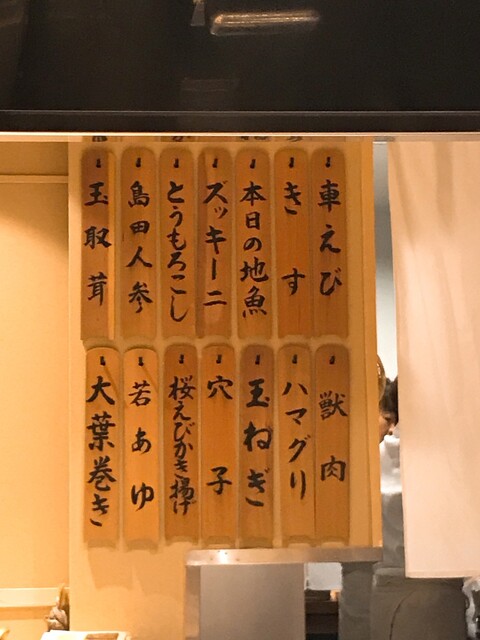 車えび
きす
本日の地魚
ズッキーニ
とうもろこし
島田人参
玉取茸
獣肉
ハマグリ
玉ねぎ
穴子
桜えびかき揚げ
若あゆ
大葉巻き